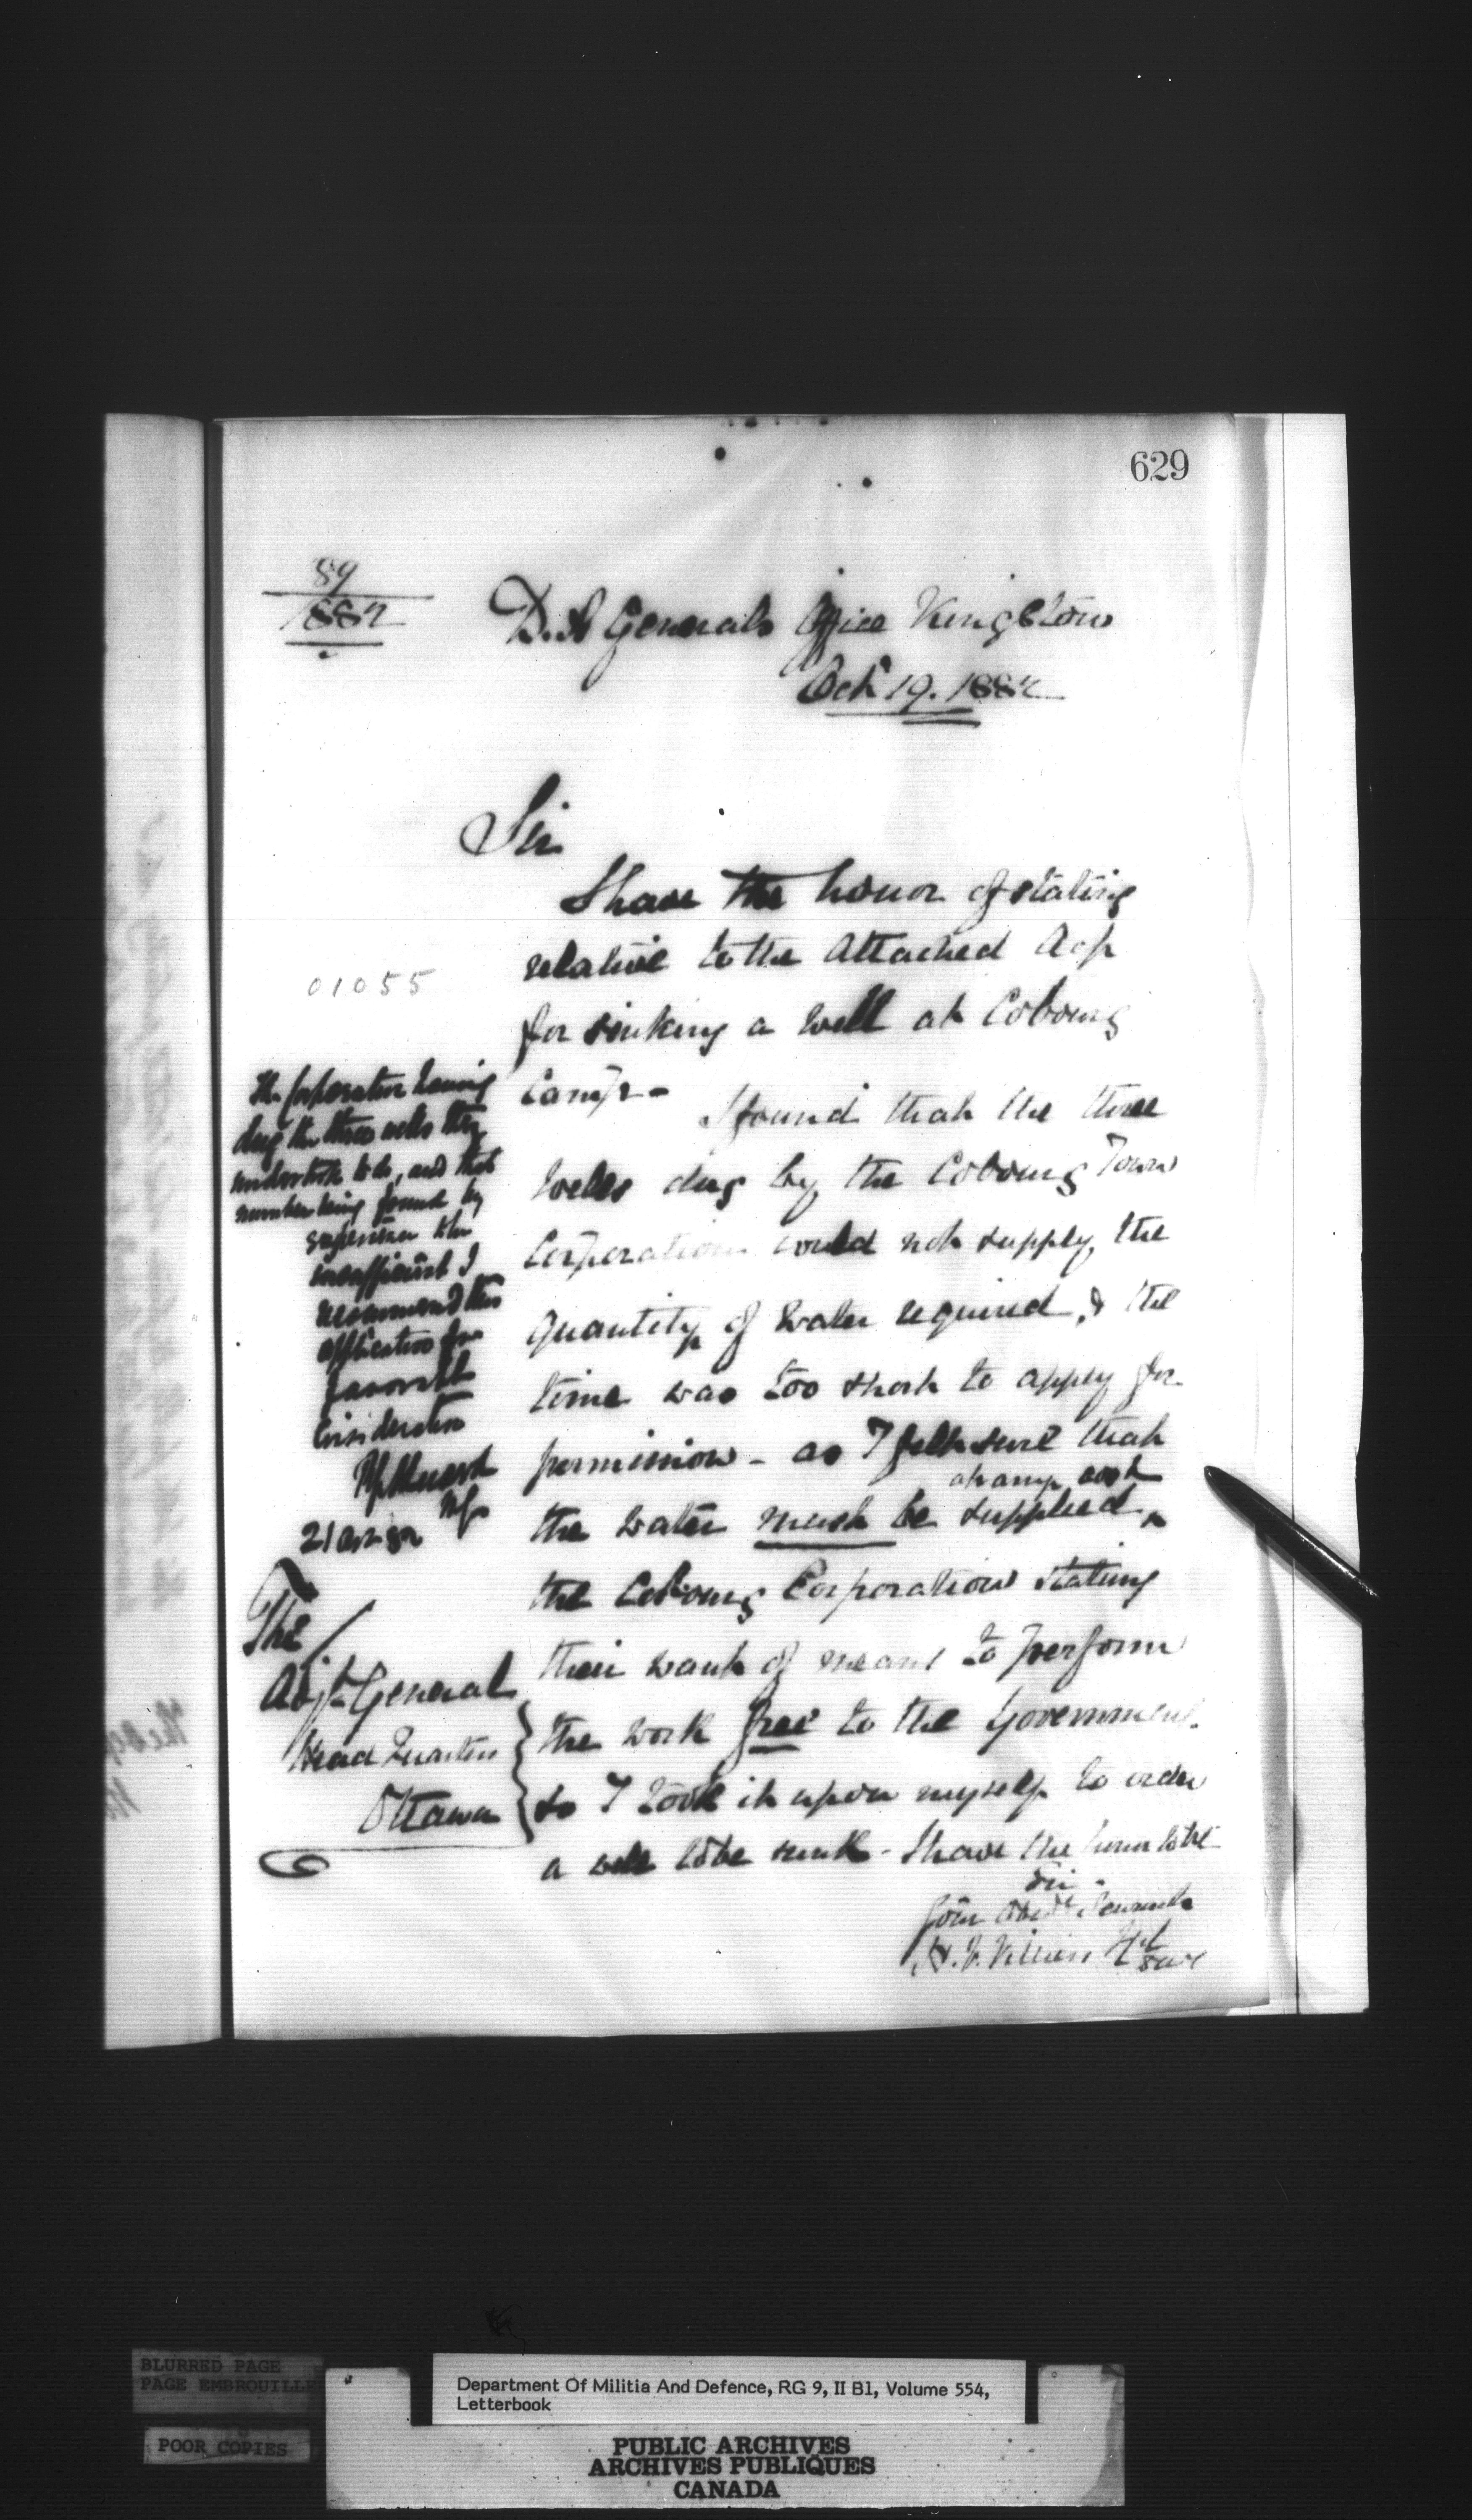 629
89
1882
D. A Generals Office Kingston
Oct 19. 1882
Sir
I have the honor of stating
relative to the attached
for sinking a well at Cobourg
Camp - I found that the three
wells dug by the Cobourg Town
Corporation would not supply the
quantity of water required, & the
time was too short to apply for
permission - as I felt sure that
at any cost
the water must be supplied
the Cobourg Corporation stating
their want of means to perform
the work free to the Government.
so I took it upon myself to order
a well to be sunk - I have the honor to be
Sir
Your Obedt Servant
H. V. Villiers
01055
The Corporation having
dug the three wells they
undertook to do, and that
number being found by
insufficient I
recommend this
application for
favorable
Consideration
21 Oct 82
The
Adjt General
Head Quarters
Ottawa
BLURRED PAGE
PAGE EMBROUILLE
POOR COPIES
Department Of Militia And Defence, RG 9, II B1, Volume 554,
Letterbook
PUBLIC ARCHIVES
ARCHIVES PUBLIQUES
CANADA